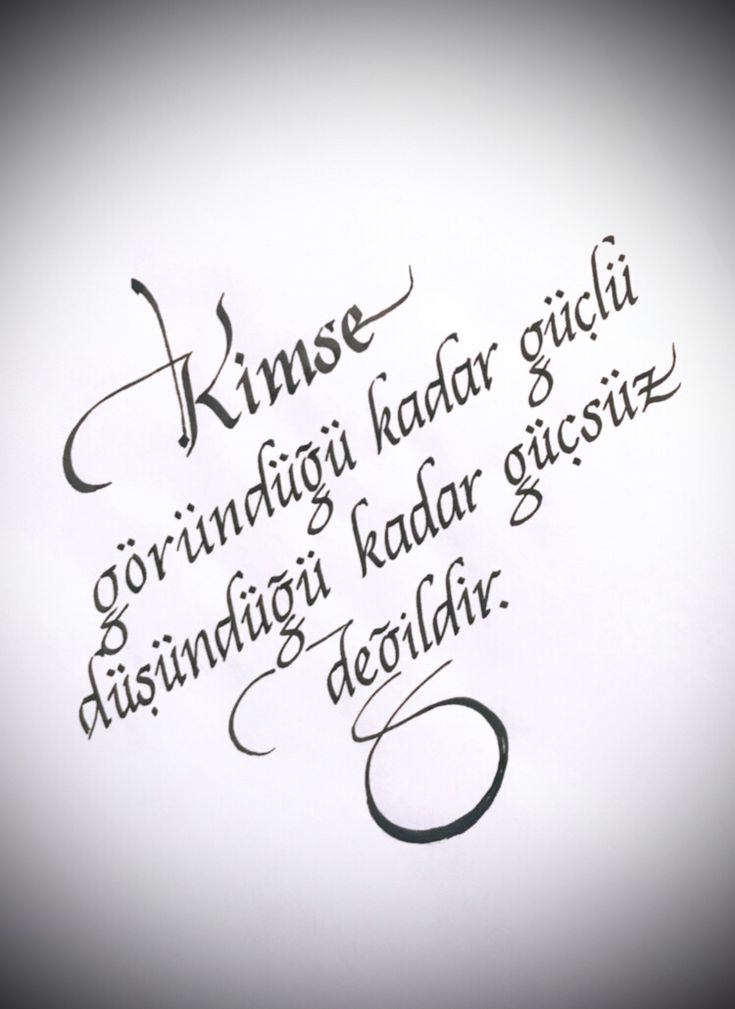 Kimse
göründüğü kadar güçlü
düşündüğü kadar güçsüz
değildir.